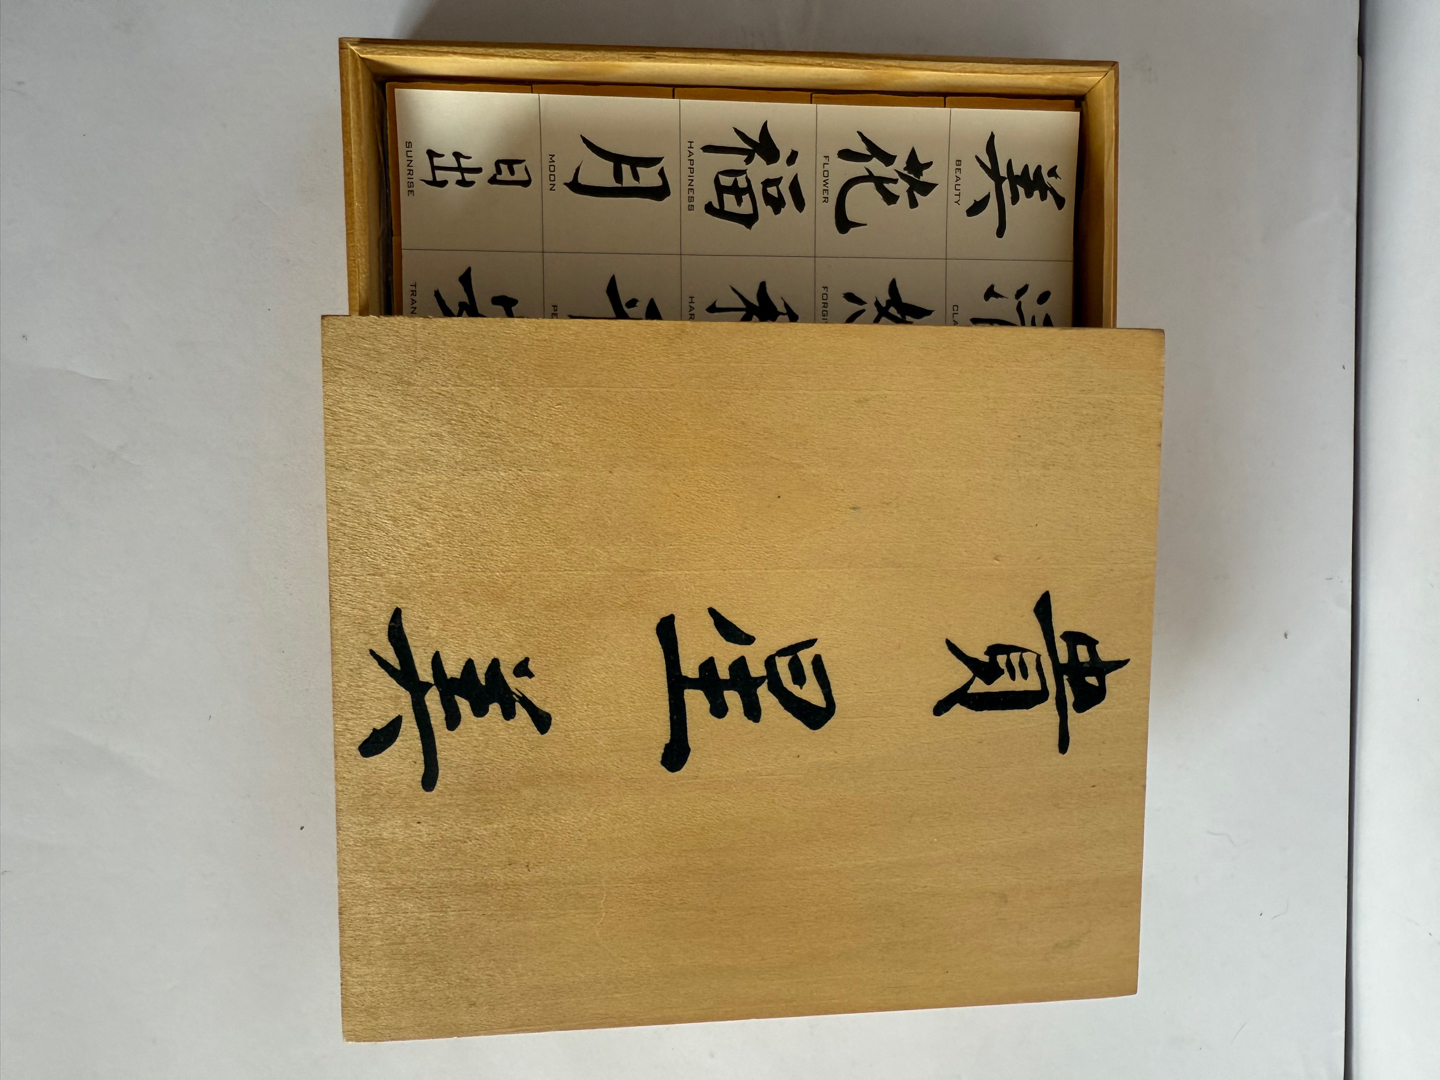 美
BEAUTY
花
FLOWER
福
HAPPINESS
月
MOON
日出
SUNRISE
CLA
FORGI
HAR
PE
TRAN
貴
星
美